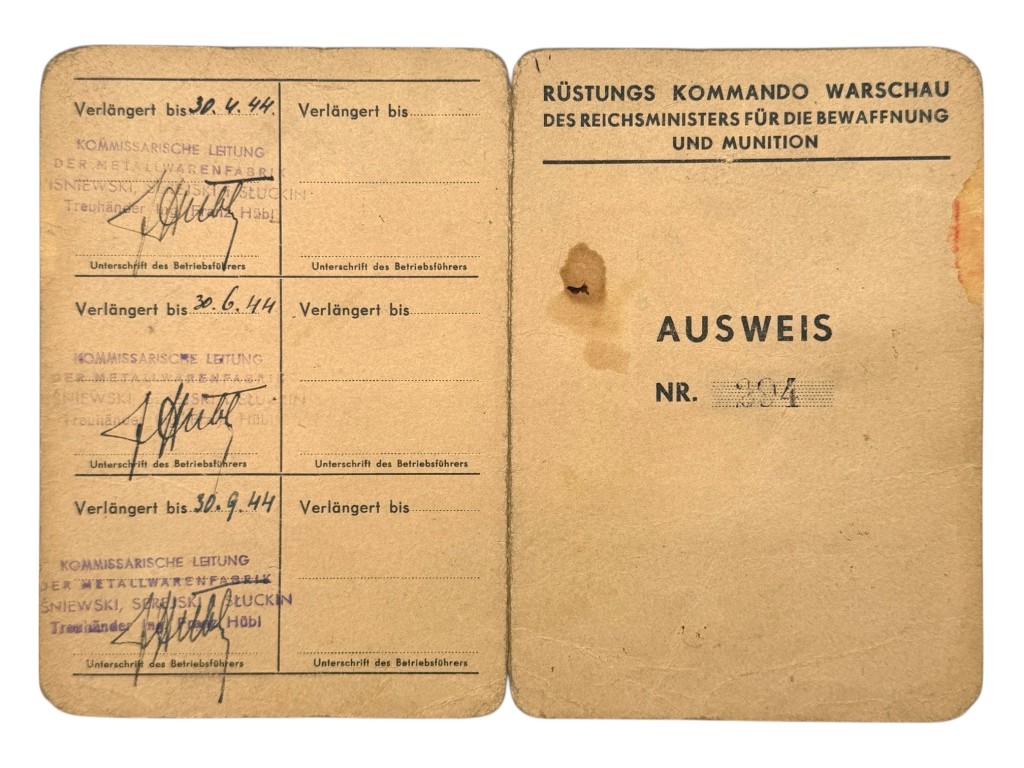 Verlängert bis 30.4.44.
KOMMISSARISCHE LEITUNG
DER METALLWARENFABRIK
IŚNIEWSKI, SEREJSKI, SŁUCKIN
Treuhänder Ing. Franz Hübl
Hübl
Unterschrift des Betriebsführers
Verlängert bis
Unterschrift des Betriebsführers
Verlängert bis 30.6.44
KOMMISSARISCHE LEITUNG
DER METALLWARENFABRIK
ŚNIEWSKI, SEREJSKI, SŁUCKIN
Treuhänder Ing. Franz Hübl
Hübl
Unterschrift des Betriebsführers
Verlängert bis
Unterschrift des Betriebsführers
Verlängert bis 30.9.44
KOMMISSARISCHE LEITUNG
DER METALLWARENFABRIK
ŚNIEWSKI, SEREJSKI, SŁUCKIN
Treuhänder Ing. Franz Hübl
Hübl
Unterschrift des Betriebsführers
Verlängert bis
Unterschrift des Betriebsführers
RÜSTUNGS KOMMANDO WARSCHAU
DES REICHSMINISTERS FÜR DIE BEWAFFNUNG
UND MUNITION
AUSWEIS
NR. 294